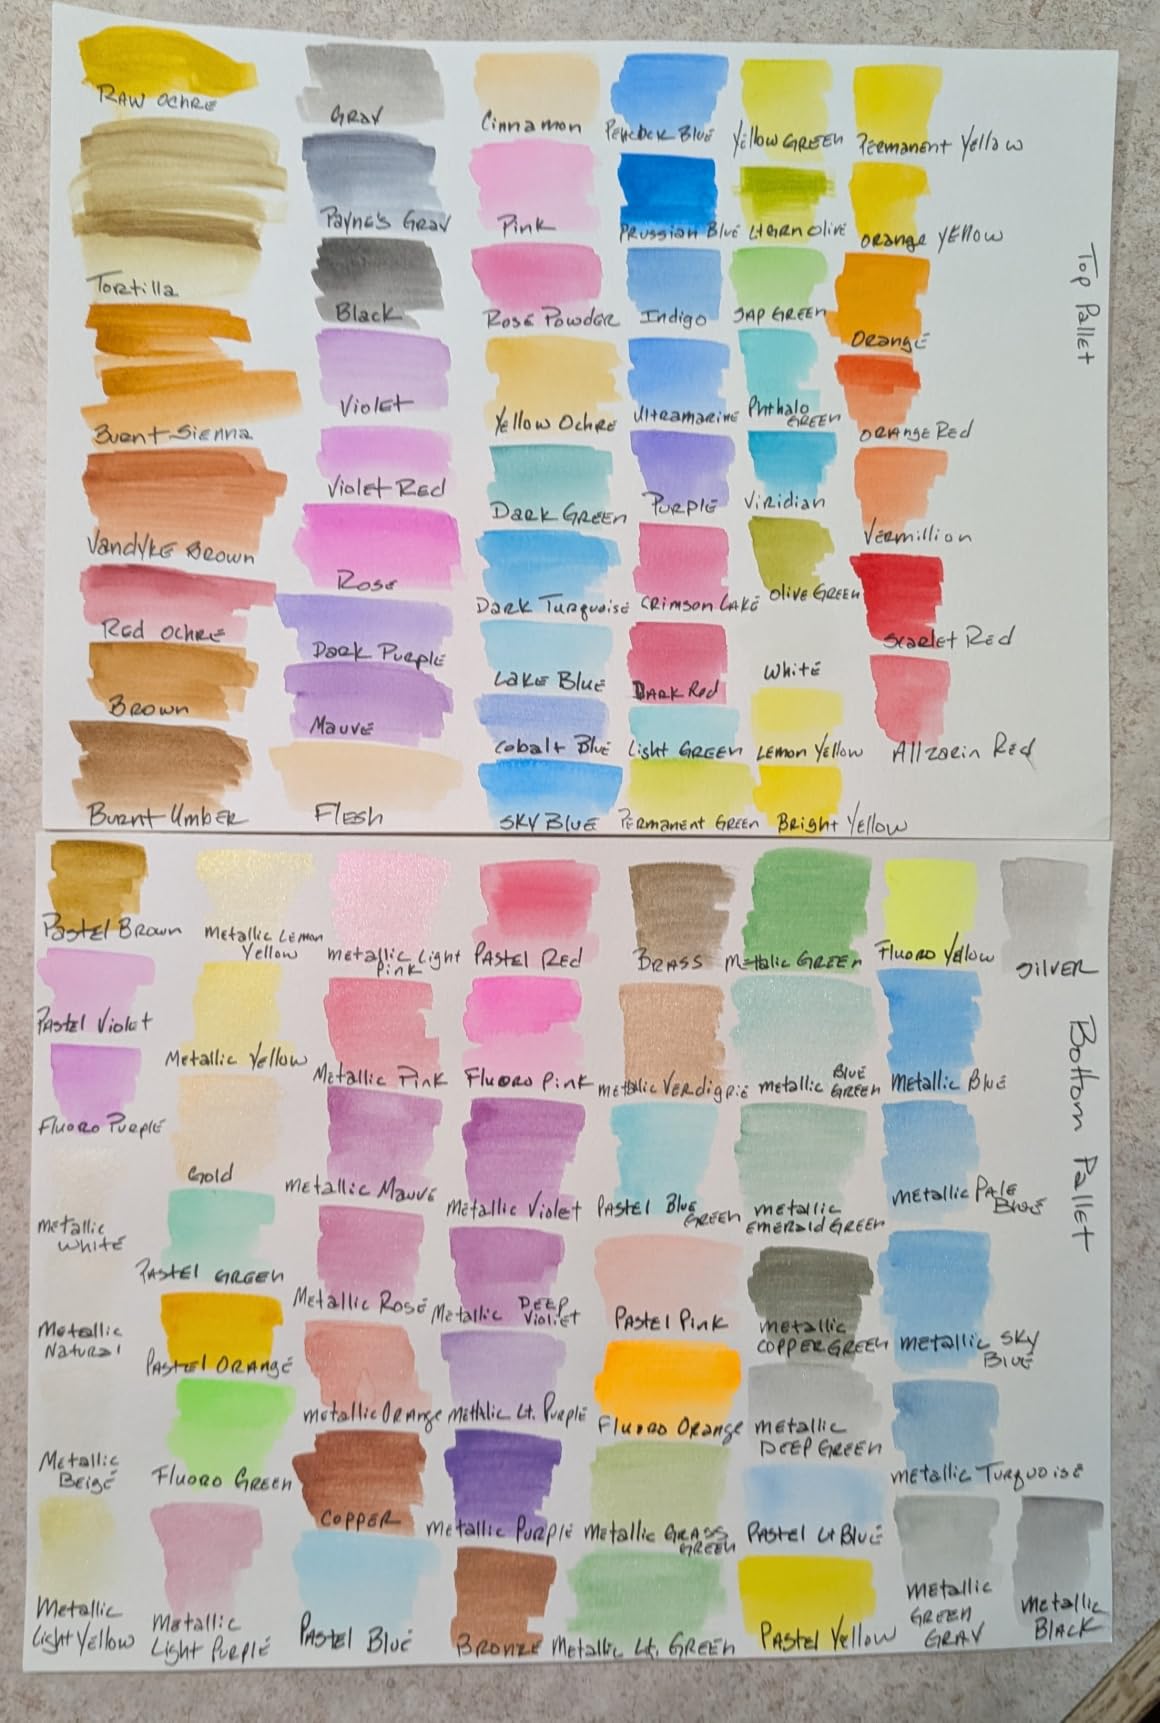 RAW OCHRE
GRAY
Cinnamon
Peacock Blue
Yellow GREEN
PERMANENT Yellow
PAYNE'S GRAY
Pink
PRussian Blue
Lt GRN Olive
ORange YEllow
Tortilla
Black
Rose Powder
Indigo
SAP GREEN
ORange
Burnt Sienna
Violet
Yellow Ochre
Ultramarine
Phthalo
GREEN
ORange Red
Vandyke Brown
Violet Red
DARK GREEN
Purple
Viridian
Vermillion
Red Ochre
Rose
Dark Turquoise
Crimson Lake
Olive Green
Scarlet Red
Brown
Dark Purple
Lake Blue
Dark Red
White
Alizarin Red
Mauve
Cobalt Blue
Light Green
Lemon Yellow
Burnt Umber
Flesh
SKY BLUE
Permanent Green
Bright Yellow
Top Pallet
Pastel Brown
Metallic Lemon
Yellow
Metallic Light
Pink
Pastel Red
BRASS
Metallic GREEN
Fluoro Yellow
SILVER
Pastel Violet
Metallic Yellow
Metallic Pink
Fluoro Pink
Metallic Verdigris
Metallic BLUE
GREEN
Metallic Blue
Fluoro Purple
Gold
Metallic Mauve
Metallic Violet
Pastel Blue
GREEN
Metallic
Emerald Green
Metallic Pale
Blue
Metallic
White
Pastel Green
Metallic Rose
Metallic DEEP
Violet
Pastel Pink
Metallic
COPPER GREEN
Metallic Sky
Blue
Metallic
Natural
Pastel Orange
Metallic Orange
Metallic Lt. Purple
Fluoro Orange
Metallic
DEEP GREEN
Metallic Turquoise
Metallic
Beige
Fluoro Green
COPPER
Metallic Purple
Metallic Grass
Green
Pastel Lt Blue
Metallic
Light Yellow
Metallic
Light Purple
Pastel Blue
BRONZE
Metallic Lt. Green
Pastel Yellow
Metallic
GREEN
GRAY
Metallic
BLACK
Bottom Pallet